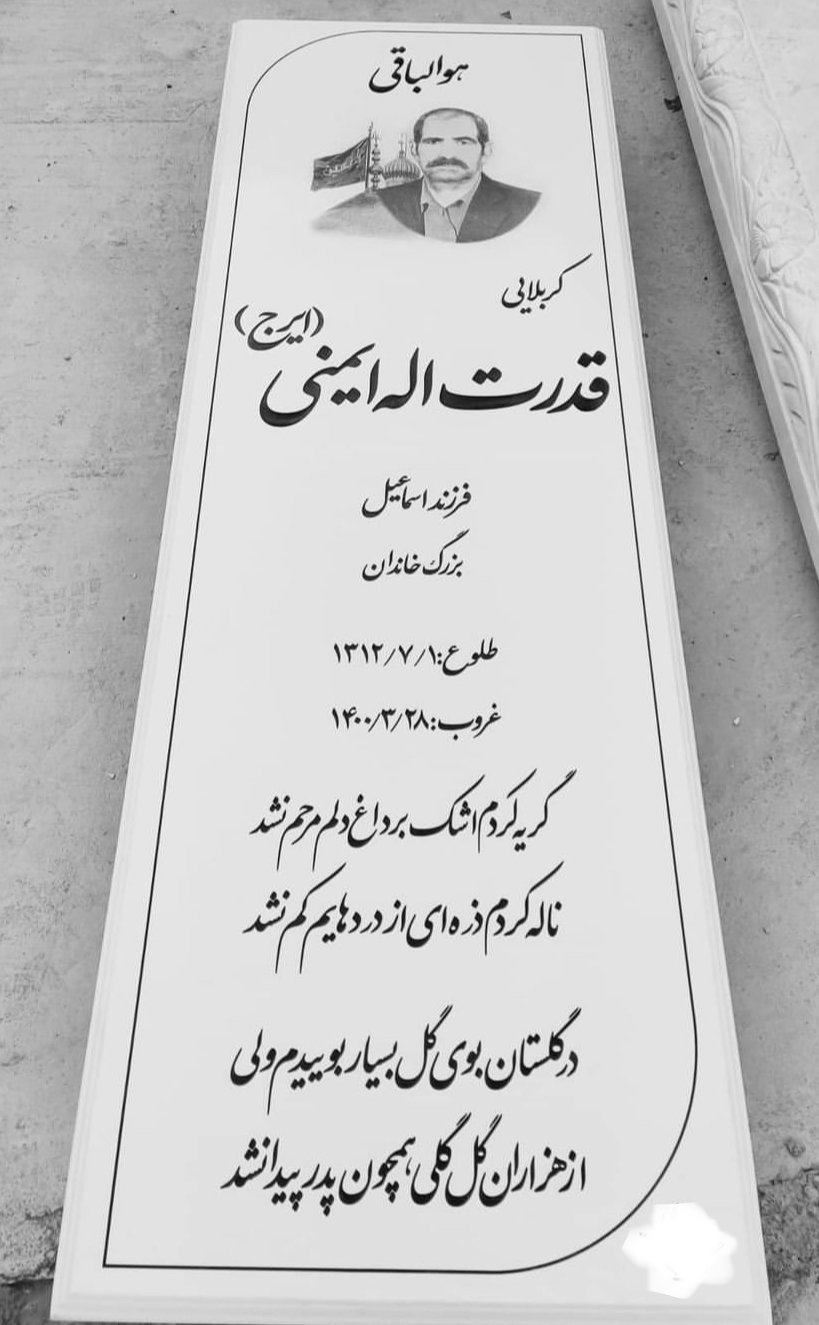 هوالباقی
کربلایی
(ایرج)
قدرت اله ایمنی
فرزند اسماعیل
بزرگ خاندان
طلوع: ۱۳۱۲/۷/۱
غروب: ۱۴۰۰/۳/۲۸
گریه کردم اشک بر داغ دلم مرحم نشد
ناله کردم ذره ای از دردهایم کم نشد
در گلستان بوی گل بسیار بوییدم ولی
از هزاران گل گلی همچون پدر پیدا نشد